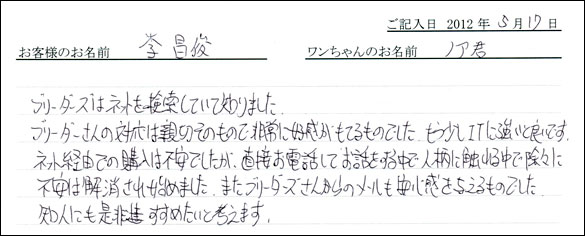 ご記入日 2012 年 5 月 17 日
お客様のお名前 李昌俊 ワンちゃんのお名前 ノア君
ブリーダーズはネットを検索していて知りました.
ブリーダーさんの対応は親切そのもので非常に好感がもてるものでした. もう少しITに強いと良いです.
ネット経由での購入は不安でしたが、直接お電話してお話をする中で人柄に触れる中で除々に
不安は解消され始めました. またブリーダーズさんからのメールも安心感を与えるものでした.
知人にも是非すすめたいと考えます.